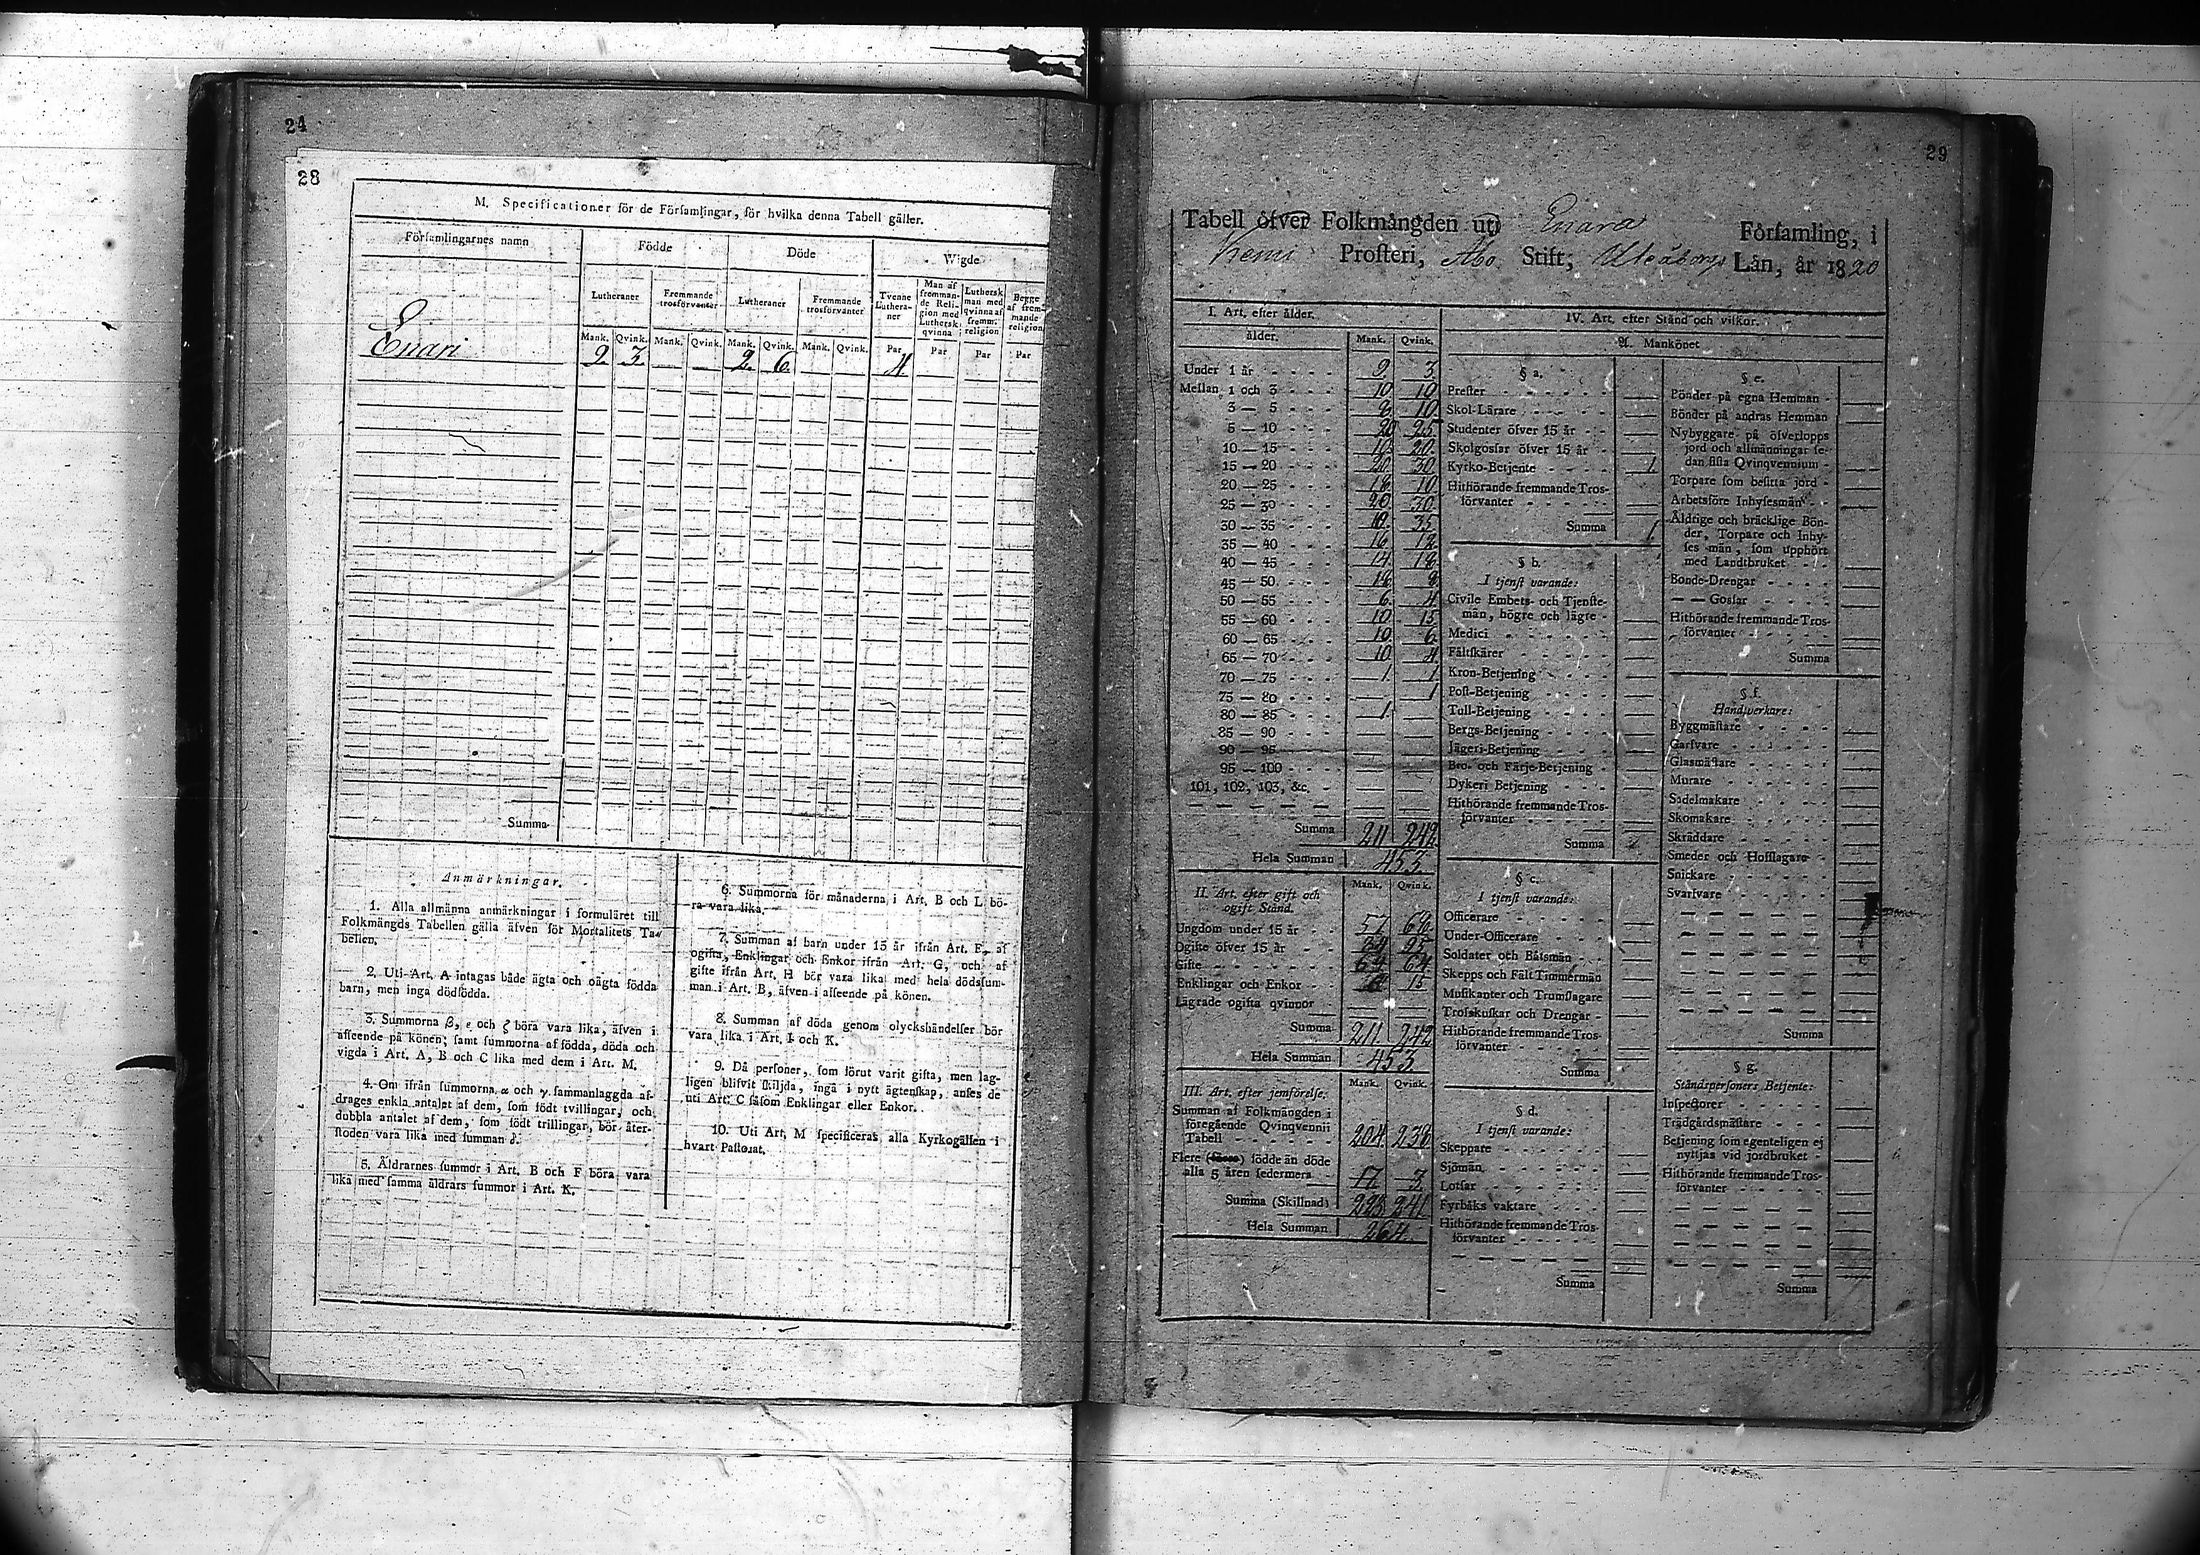 24
28
M. Specificationer för de Församlingar, för hvilka denna Tabell gäller.
Församlingarnes namn Födde Döde Wigde
Lutheraner Fremmande trosförvanter Lutheraner Fremmande trosförvanter Tvenne Lutheraner Man af fremmande Religion med Luthersk qvinna Luthersk man med qvinna af fremm. religion Begge af fremmande religion
Mank. Qvink. Mank. Qvink. Mank. Qvink. Mank. Qvink. Par Par Par Par
Enari 9. 3. — — 2. 6. — — 4. — — —
Summa
Anmärkningar.
1. Alla allmänna anmärkningar i formuläret till
Folkmängds Tabellen gälla äfven för Mortalitets Ta-
bellen.
2. Uti Art. A intagas både ägta och oägta födda
barn, men inga dödfödda.
3. Summorna β, ε och ζ böra vara lika, äfven i
afseende på könen; samt summorna af födda, döda och
vigda i Art. A, B och C lika med dem i Art. M.
4. Om ifrån summorna α och γ sammanlaggda af-
drages enkla antalet af dem, som födt tvillingar, och
dubbla antalet af dem, som födt trillingar, bör åter-
stoden vara lika med summan δ.
5. Äldrarnes summor i Art. B och F böra vara
lika med samma äldrars summor i Art. K.
6. Summorna för månaderna i Art. B och L bö-
ra vara lika.
7. Summan af barn under 15 år ifrån Art. F, af
ogifta, Enklingar och Enkor ifrån Art. G, och af
gifte ifrån Art. H bör vara lika med hela dödssum-
man i Art. B, äfven i afseende på könen.
8. Summan af döda genom olyckshändelser bör
vara lika i Art. I och K.
9. Då personer, som förut varit gifta, men lag-
ligen blifvit skiljda, ingå i nytt ägtenskap, anses de
uti Art. C såsom Enklingar eller Enkor.
10. Uti Art. M specificeras alla Kyrkogällen i
hvart Pastorat.
29
Tabell öfver Folkmängden uti Enara Församling, i
Kemi Prosteri, Åbo Stift; Uleåborgs Län, år 1820
I. Art. efter ålder.
ålder. Mank. Qvink.
Under 1 år 9. 3.
Mellan 1 och 3 10 10
3 — 5 8 10
5 — 10 20 25
10 — 15 20.
15 — 20 20. 30
20 — 25 18 10
25 — 30 20. 30.
30 — 35 35
35 — 40 16 12
40 — 45 14. 18
45 — 50 8.
50 — 55 6. 4
55 — 60 10 15
60 — 65 10 6.
65 — 70 10 4.
70 — 75 1 1
75 — 80 — 1
80 — 85 1. —
85 — 90
90 — 95
95 — 100
101, 102, 103, &c.
Summa 211 242
Hela Summan 453.
II. Art. efter gift och ogift Stånd. Mank. Qvink.
Ungdom under 15 år 57
Ogifte öfver 15 år 95
Gifte 64 64
Enklingar och Enkor 15
Lägrade ogifta qvinnor
Summa 211. 242
Hela Summan 453.
III. Art. efter jemförelse: Mank. Qvink.
Summan af Folkmängden i
föregående Qvinqvennii
Tabell 204. 238
Flere födde än döde
alla 5 åren sedermera 17. 3.
Summa (Skillnad) 241
Hela Summan 264.
IV. Art. efter Stånd och vilkor.
A. Mankönet
§ a.
Prester
Skol-Lärare
Studenter öfver 15 år
Skolgossar öfver 15 år
Kyrko-Betjente 1.
Hithörande fremmande Tros-
förvanter
Summa 1.
§ b.
I tjenst varande:
Civile Embets- och Tjenste-
män, högre och lägre
Medici
Fältskärer
Kron-Betjening
Post-Betjening
Tull-Betjening
Bergs-Betjening
Jägeri-Betjening
Bro- och Färje-Betjening
Dykeri Betjening
Hithörande fremmande Tros-
förvanter
Summa
§ c.
I tjenst varande:
Officerare
Under-Officerare
Soldater och Båtsmän
Skepps och Fält Timmermän
Musikanter och Trumslagare
Trosskuskar och Drengar
Hithörande fremmande Tros-
förvanter
Summa
§ d.
I tjenst varande:
Skeppare
Sjömän
Lotsar
Fyrbåks vaktare
Hithörande fremmande Tros-
förvanter
Summa
§ e.
Bönder på egna Hemman
Bönder på andras Hemman
Nybyggare på öfverlopps
jord och allmänningar se-
dan sista Qvinqvennium
Torpare som besitta jord
Arbetsföre Inhysesmän
Äldrige och bräcklige Bön-
der, Torpare och Inhy-
ses män, som upphört
med Landtbruket
Bonde-Drengar
— — Gossar
Hithörande fremmande Tros-
förvanter
Summa
§ f.
Handtverkare:
Byggmästare
Garfvare
Glasmästare
Murare
Sadelmakare
Skomakare
Skräddare
Smeder och Hofslagare
Snickare
Svarfvare
Summa
§ g.
Ståndspersoners Betjente:
Inspectorer
Trädgårdsmästare
Betjening som egenteligen ej
nyttjas vid jordbruket
Hithörande fremmande Tros-
förvanter
Summa